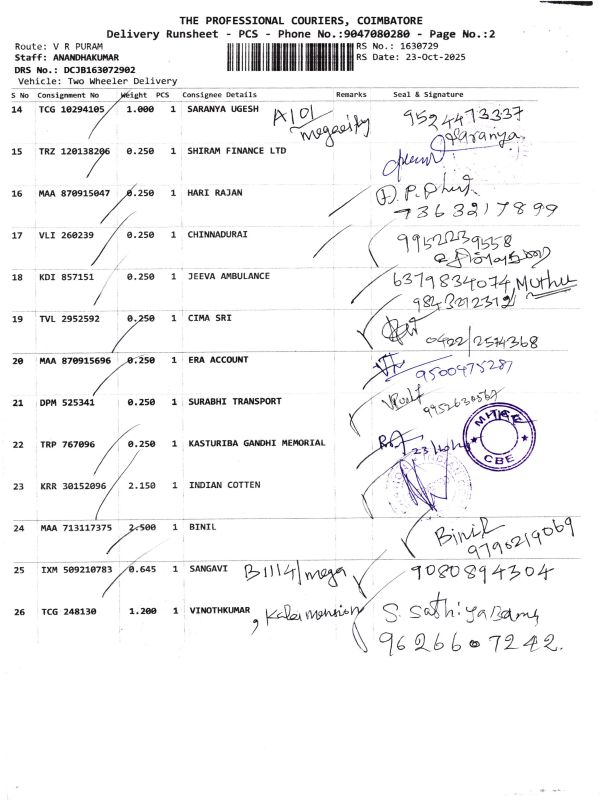 THE PROFESSIONAL COURIERS, COIMBATORE
Delivery Runsheet - PCS - Phone No.:9047080280 - Page No.:2
Route: V R PURAM RS No.: 1630729
Staff: ANANDHAKUMAR RS Date: 23-Oct-2025
DRS No.: DCJB163072902
Vehicle: Two Wheeler Delivery
S No Consignment No Weight PCS Consignee Details Remarks Seal & Signature
14 TCG 10294105 1.000 1 SARANYA UGESH A101 9524473337
megacity Saranya
15 TRZ 120138206 0.250 1 SHIRAM FINANCE LTD
16 MAA 870915047 0.250 1 HARI RAJAN
7363217899
17 VLI 260239 0.250 1 CHINNADURAI 9952239558
18 KDI 857151 0.250 1 JEEVA AMBULANCE 6379834074 Muthu
9843212312
19 TVL 2952592 0.250 1 CIMA SRI
0422/2574368
20 MAA 870915696 0.250 1 ERA ACCOUNT
9500475287
21 DPM 525341 0.250 1 SURABHI TRANSPORT
9952630567
22 TRP 767096 0.250 1 KASTURIBA GANDHI MEMORIAL
CBE
23 KRR 30152096 2.150 1 INDIAN COTTEN
24 MAA 713117375 2.500 1 BINIL Binil
9790219069
25 IXM 509210783 0.645 1 SANGAVI B1114/mega 9080894304
26 TCG 248130 1.200 1 VINOTHKUMAR , S. Sathiyabama
96266 07242.